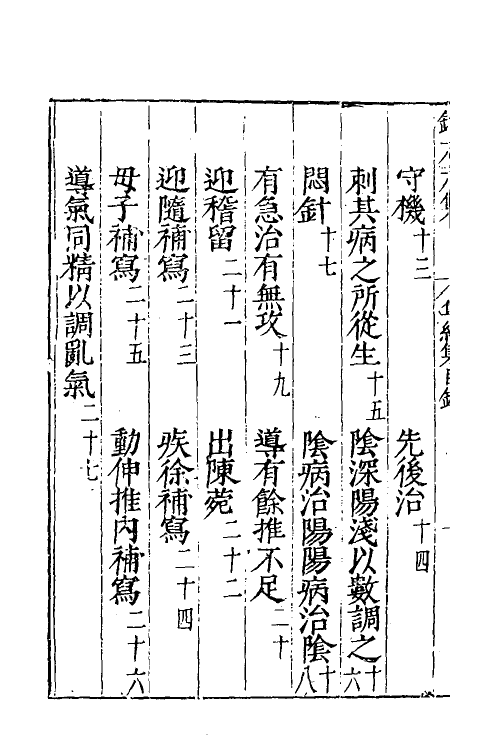 守機十三　先後治十四
刺其病之所從生十五　陰深陽淺以數調之十六
悶針十七　陰病治陽陽病治陰十八
有急治有無攻十九　導有餘推不足二十
迎稽留二十一　出陳菀二十二
迎隨補寫二十三　疾徐補寫二十四
母子補寫二十五　動伸推內補寫二十六
導氣同精以調亂氣二十七